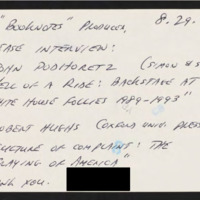 "BOOKNOTES" PRODUCER, 8.29.
EASE INTERVIEW:
OHN PODHORETZ (SIMON & S
ELL OF A RIDE: BACKSTAGE AT
HITE HOUSE FOLLIES 1989-1993"
OBERT HUGHS OXFORD UNIV. PRESS
CULTURE OF COMPLAINT: THE
AYING OF AMERICA"
ANK YOU.